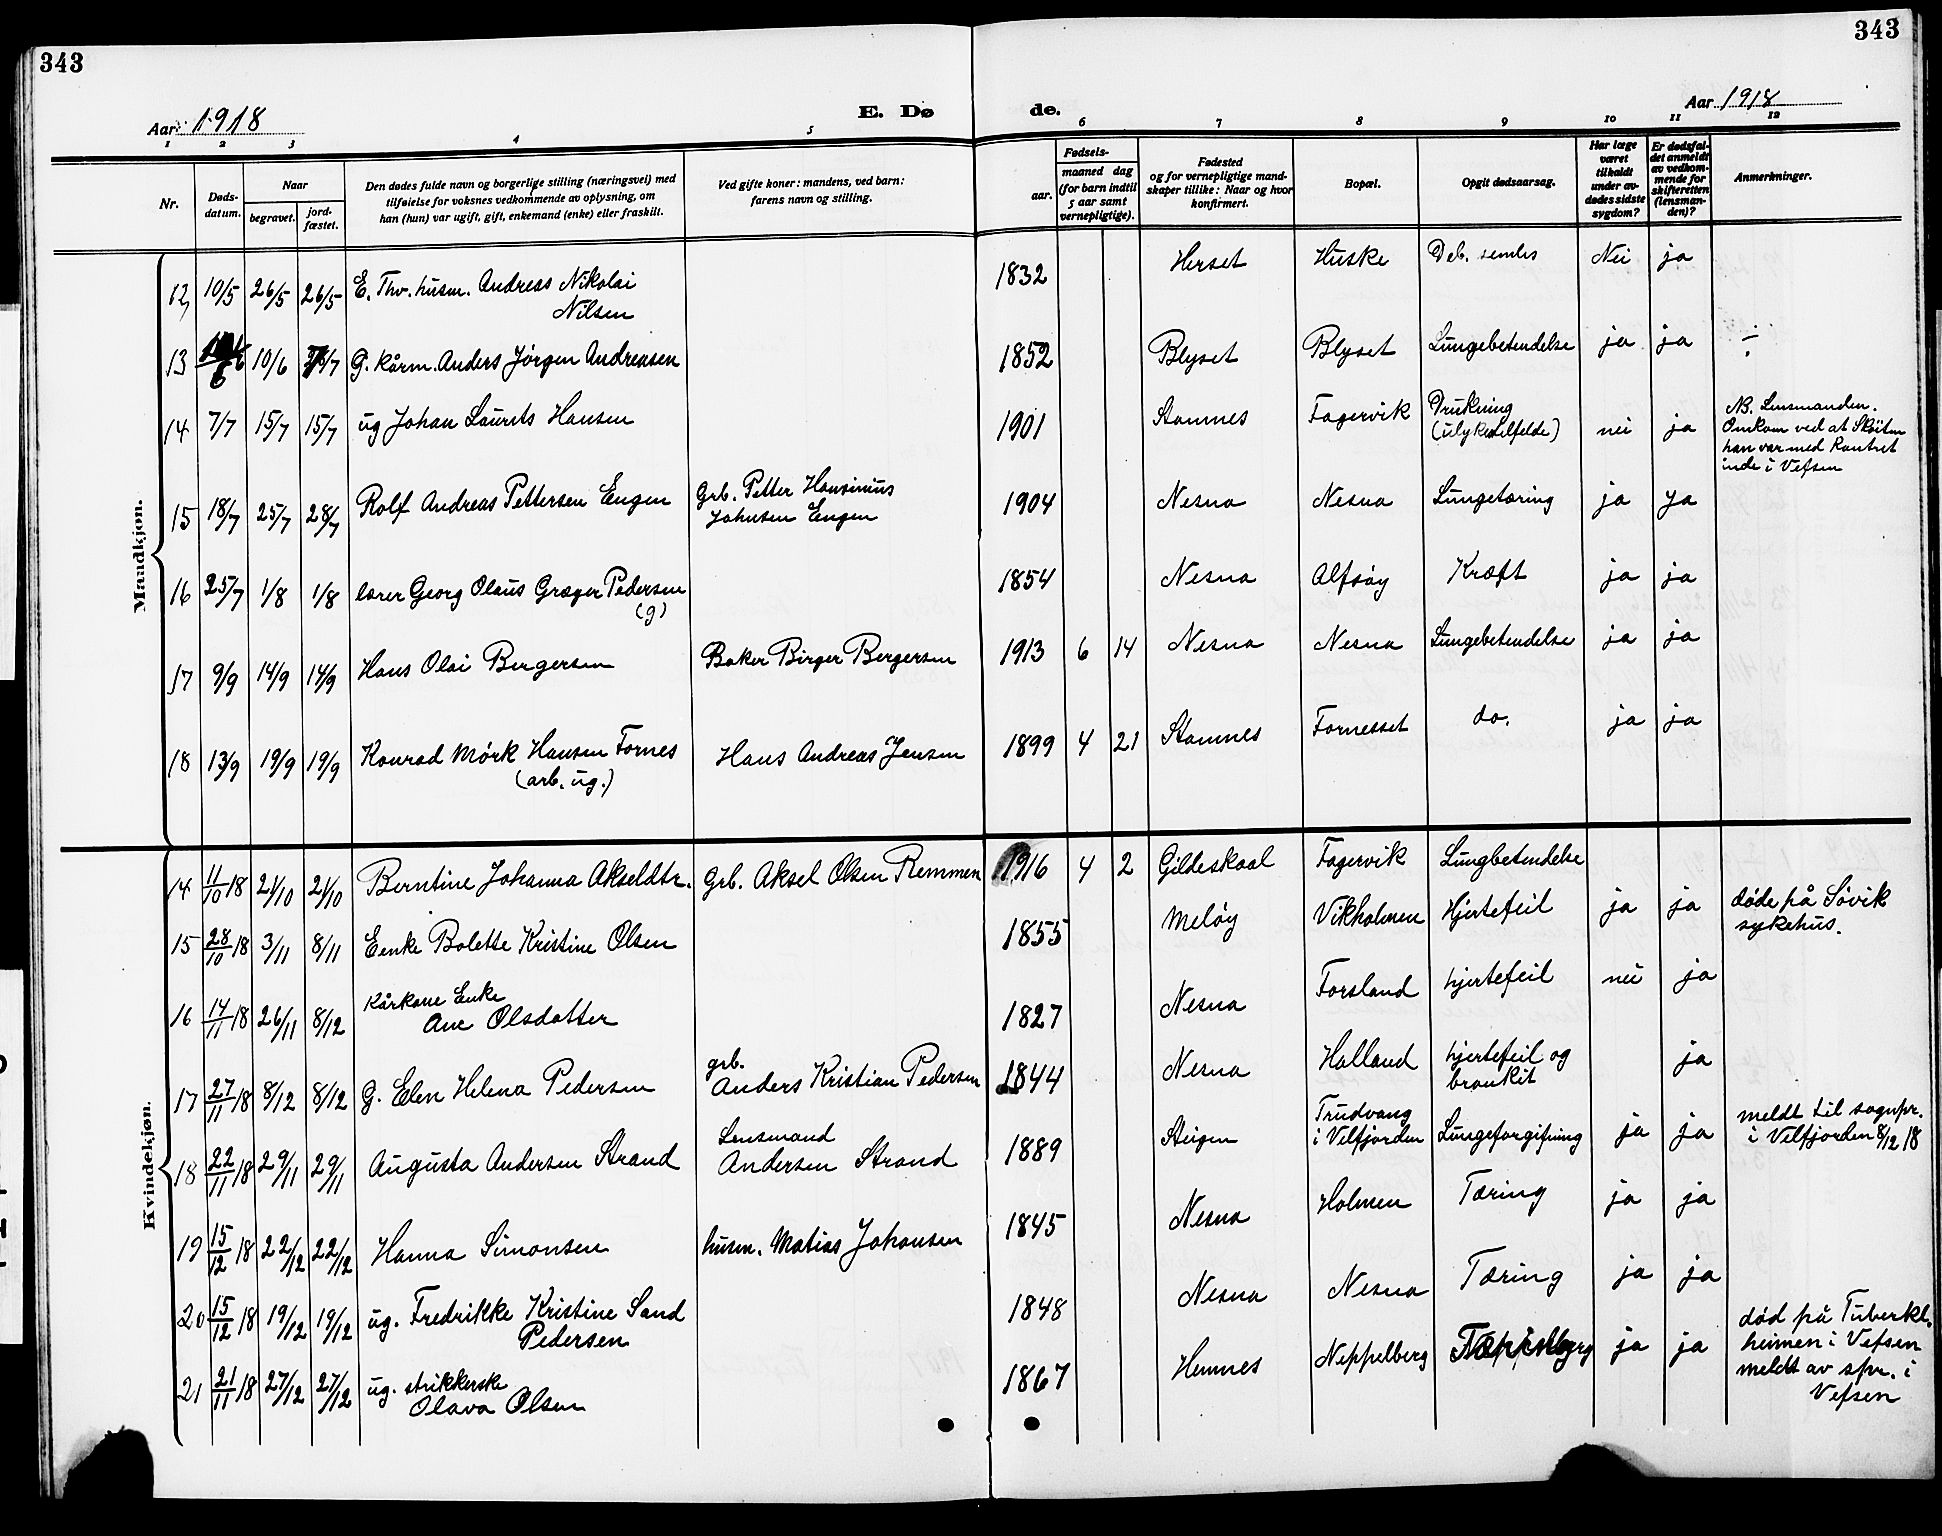 343
343
Aar 1918
E. Dø
de.
Aar 1918
1 2 3 4 5 6 7 8 9 10 11 12
Nr.
Døds-
datum.
Naar
begravet.
jord-
fæstet.
Den dødes fulde navn og borgerlige stilling (næringsvei) med
tilføielse for voksnes vedkommende av oplysning, om
han (hun) var ugift, gift, enkemand (enke) eller fraskilt.
Ved gifte koner: mandens, ved barn:
farens navn og stilling.
Fødsels-
aar.
maaned dag
(for barn indtil
5 aar samt
vernepligtige).
Fødested
og for vernepligtige mand-
skaper tillike: Naar og hvor
konfirmert.
Bopæl.
Opgit dødsaarsag.
Har læge
været
tilkaldt
under av-
dødes sidste
sygdom?
Er dødsfal-
det anmeldt
av vedkom-
mende for
skifteretten
(lensman-
den)?
Anmerkninger.
Mandkjøn.
12, 10/5 26/5 26/5 E. Thv. husm. Andreas Nikolai
Nilsen
1832 Herset Huske Deb. senlis Nei ja
13 10/6 G. kårm. Anders Jørgen Andreasen 1852 Blyset Blyset Lungebetendelse ja ja ÷
14 7/7 15/7 15/7 ug Johan Laurits Hansen 1901 Stamnes Fagervik Drukning
(ulykestilfelde) nei ja
NB. Lensmanden.
Omkom ved at Skøiten
han var med kantret
inde i Vefsen
15 18/7 25/7 28/7 Rolf Andreas Pettersen Engen Grb. Petter Hansinius
Johnsen Engen
1904 Nesna Nesna Lungetæring ja ja
16 25/7 1/8 1/8 lærer Georg Olaus Græger Pedersen
(g)
1854 Nesna Alfsøy Kræft ja ja
17 9/9 14/9 14/9 Hans Olai Bergersen Baker Birger Bergersen 1913 6 14 Nesna Nesna Lungebetendelse ja ja
18 13/9 19/9 19/9 Konrad Mørk Hansen Fornes
(arb. ug.)
Hans Andreas Jensen 1899 4 21 Stamnes Fornesset do. ja ja
Kvindekjøn.
14 11/10 18 21/10 21/10 Berntine Johanna Akseldtr. Grb. Aksel Olsen Remmen 1916 4 2 Gildeskaal Fagervik Lungbetendelse
15 28/10 18 3/11 8/11 Eenke Bolette Kristine Olsen 1855 Meløy Vikholmen Hjertefeil ja ja døde på Søvik
sykehus.
16 14/11 18 26/11 8/12 Kårkone Enke
Ane Olsdatter
1827 Nesna Forsland hjertefeil nei ja
17 27/11 18 8/12 8/12 G. Elen Helena Pedersen grb.
Anders Kristian Pedersen
1844 Nesna Halland hjertefeil og
bronkit
ja
18 22/11 18 29/11 29/11 Augusta Andersen Strand Lensmand
Andersen Strand
1889 Steigen Trudvang
i Velfjorden Lungeforgiftning ja ja
meldt til sognpr.
i Velfjorden 8/12 18
19 15/12 18 22/12 22/12 Hanna Simonsen husm. Matias Johansen 1845 Nesna Holmen Tæring ja ja
20 15/12 18 19/12 19/12 ug. Fredrikke Kristine Sand
Pedersen
1848 Nesna Nesna Tæring ja ja
21 21/11 18 27/12 27/12 ug. strikkerske
Olava Olsen
1867 Hemnes Neppelberg ja ja
død på Tuberkl.
heimen i Vefsen
meldt av spr. i
Vefsen